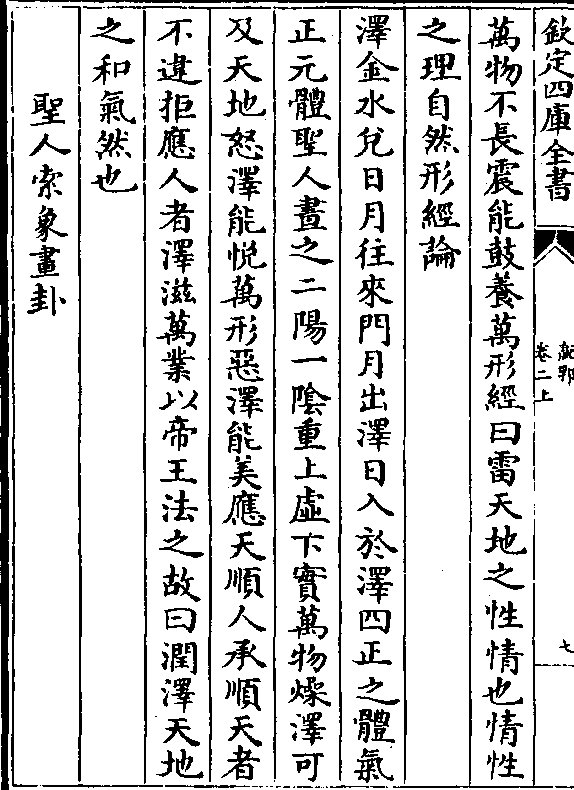 欽定四庫全書
乾鄂
卷二上
七
萬物不長震能鼓養萬形經曰雷天地之性情也情性
之理自然形經論
澤金水兌日月往來門月出澤日入於澤四正之體氣
正元體聖人畫之二陽一陰重上虛下實萬物燥澤可
及天地怒澤能悅萬形惡澤能美應天順人承順天者
不違拒應人者澤滋萬業以帝王法之故曰潤澤天地
之和氣然也
聖人索象畫卦